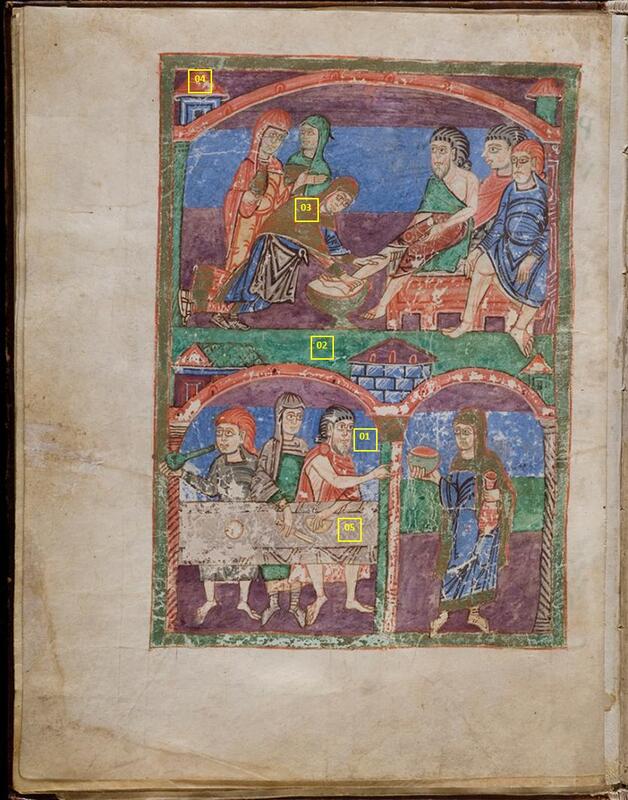 04
03
02
01
05